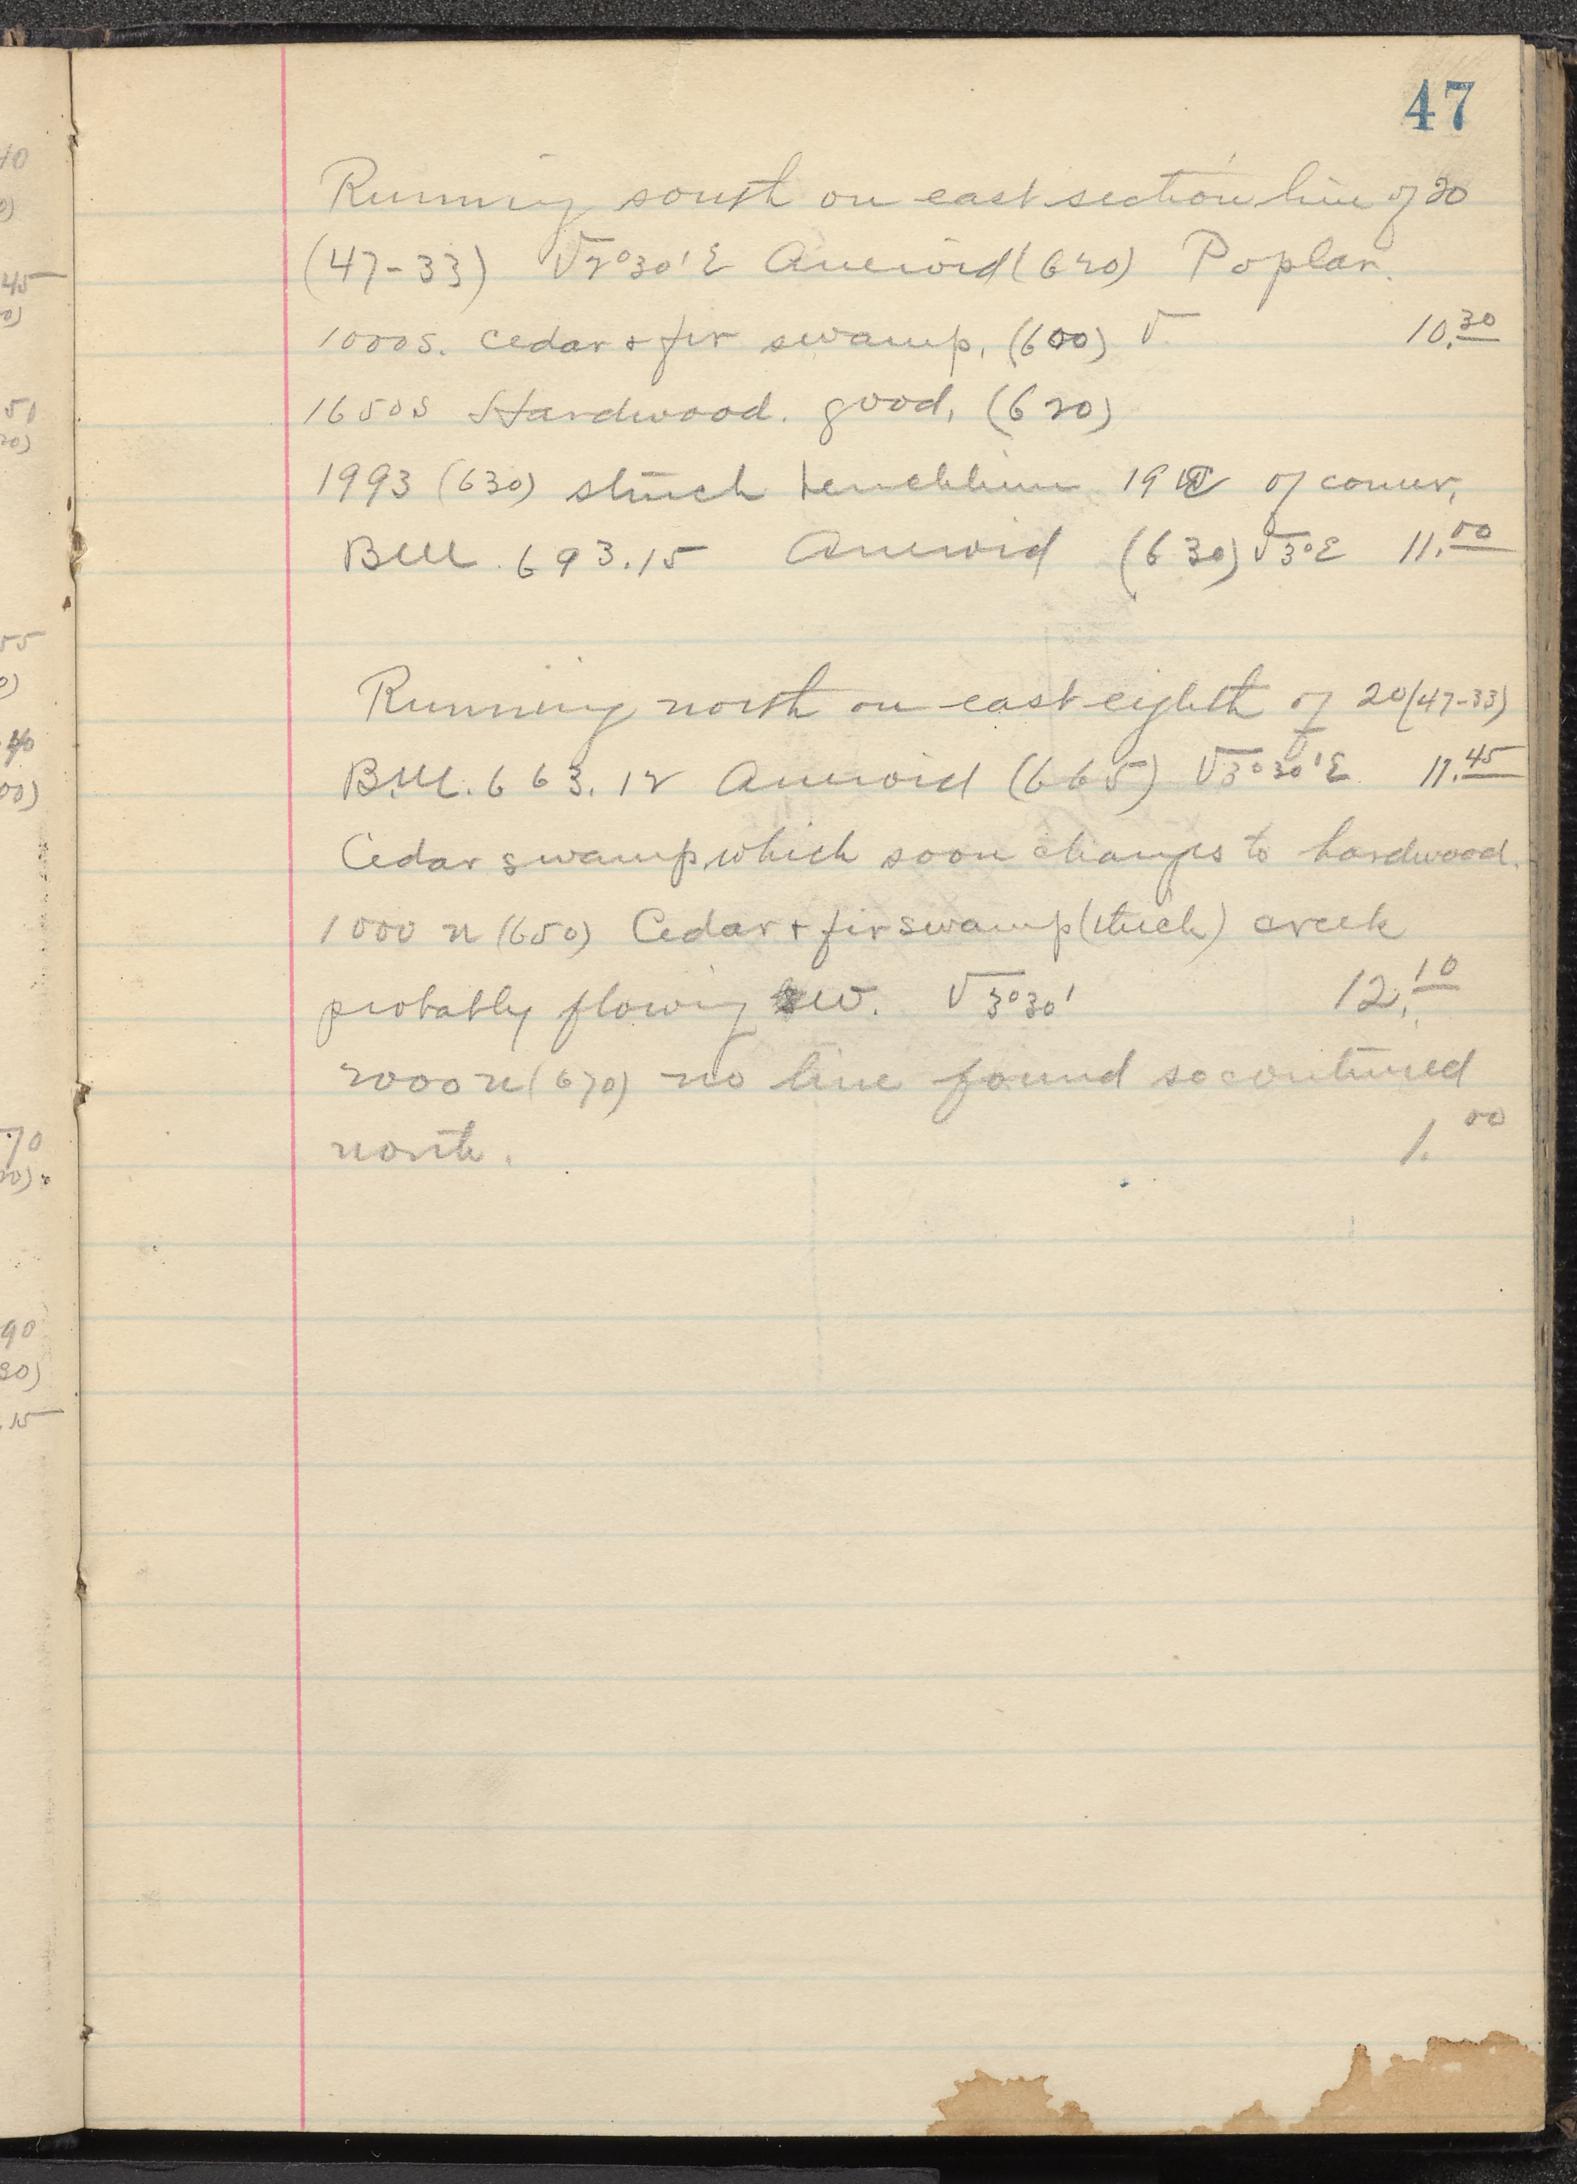 47
Running south on east section line of 20
(47-33) V 2°30'E Aneroid (620) Poplar.
1000 S. Cedar + fir swamp, (600) V 10.30
1650 S Hardwood. good, (620)
1993 (630) struck benchline 19 of corner,
B.M. 693.15 Aneroid (630) V 3°E 11.00
Running north on east eighth of 20 (47-33)
B.M. 663.12 Aneroid (665) V 3°30'E 11.45
Cedar swamp which soon changes to hardwood.
1000 n (650) Cedar + fir swamp (thick) creek
probably flowing W. V 3°30' 12.10
2000 n (670) no line found so continued
north. 1.00